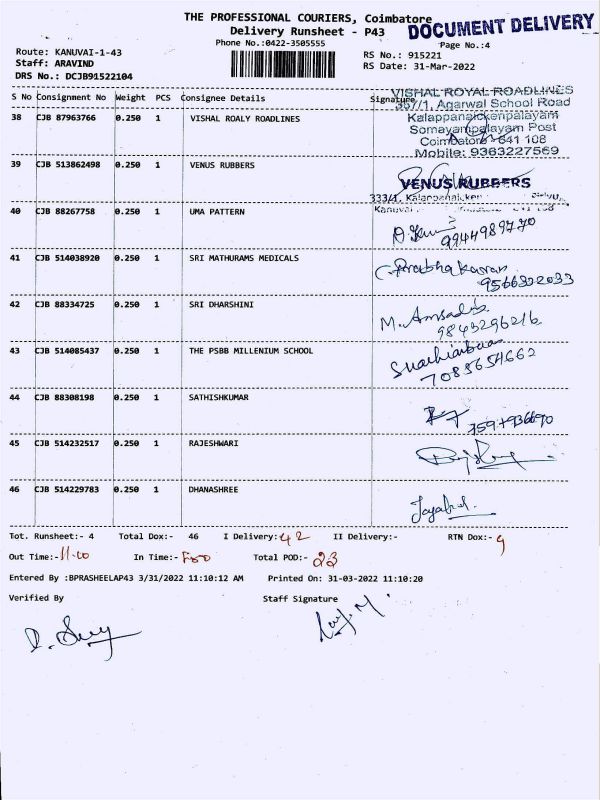 THE PROFESSIONAL COURIERS, Coimbatore
DOCUMENT DELIVERY
Delivery Runsheet - P43
Phone No.:0422-3505555
Page No.:4
Route: KANUVAI-1-43
RS No.: 915221
Staff: ARAVIND
RS Date: 31-Mar-2022
DRS No.: DCJB91522104
S No Consignment No Weight PCS Consignee Details Signature
VISHAL ROYAL ROADLINES
357/1, Agarwal School Road
38 CJB 87963766 0.250 1 VISHAL ROALY ROADLINES
Kalappanaickenpalayam
Somayampalayam Post
Coimbatore - 641 108
Mobile: 9363227569
39 CJB 513862498 0.250 1 VENUS RUBBERS
VENUS RUBBERS
40 CJB 88267758 0.250 1 UMA PATTERN
9944989770
41 CJB 514038920 0.250 1 SRI MATHURAMS MEDICALS
Prabhakaran
9566322033
42 CJB 88334725 0.250 1 SRI DHARSHINI
9843296216
43 CJB 514085437 0.250 1 THE PSBB MILLENIUM SCHOOL
44 CJB 88308198 0.250 1 SATHISHKUMAR
45 CJB 514232517 0.250 1 RAJESHWARI
46 CJB 514229783 0.250 1 DHANASHREE
Tot. Runsheet:- 4 Total Dox:- 46 I Delivery:- 42 II Delivery:- RTN Dox:-
Out Time:- 11.10 In Time:- Total POD:- 23
Entered By :BPRASHEELAP43 3/31/2022 11:10:12 AM Printed On: 31-03-2022 11:10:20
Verified By Staff Signature